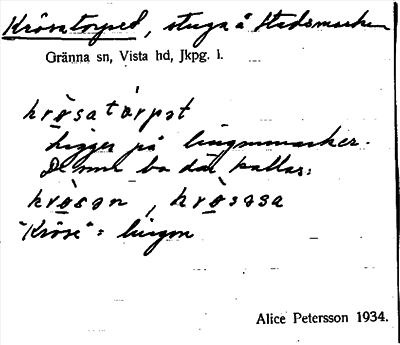 Krösatorped, stuga å Stadsmarken
Gränna sn, Vista hd, Jkpg. l.
krö̱satorpət
Ligger på lingonmarker.
De som bo där kallas:
krö̱sən, krö̱səsa
"Kröse" = lingon
Alice Petersson 1934.